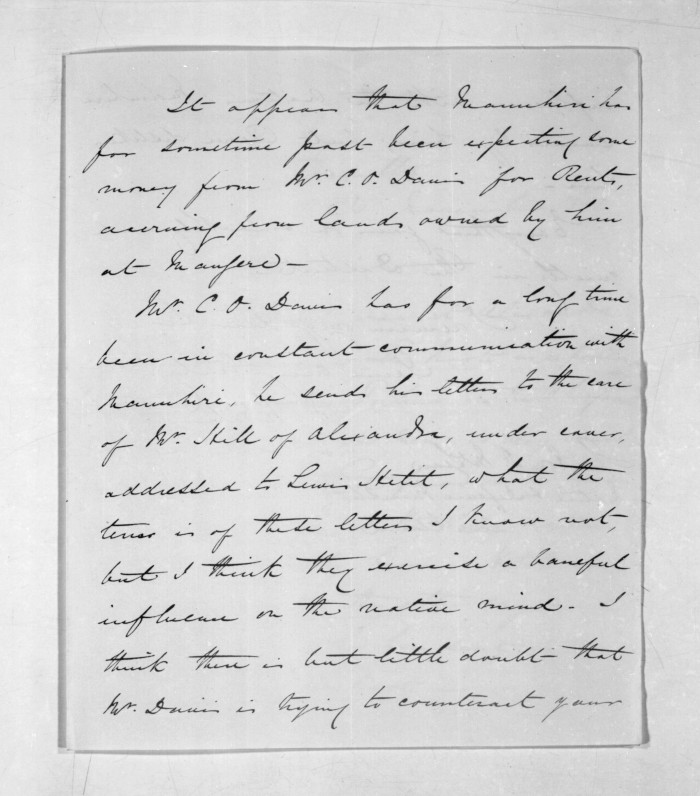 It appears that Manuhiri has
for sometime past been expecting some
money from Mr. C. O. Davis for Rents,
accruing from lands owned by him
at Mangere —
Mr. C. O. Davis has for a long time
been in constant communication with
Manuhiri, he sends his letters to the care
of Mr. Hill of Alexandra, under cover,
addressed to Lewis Hetit, what the
tenor is of these letters I know not,
but I think they exercise a baneful
influence on the native mind - I
think there is but little doubt that
Mr. Davis is trying to counteract your